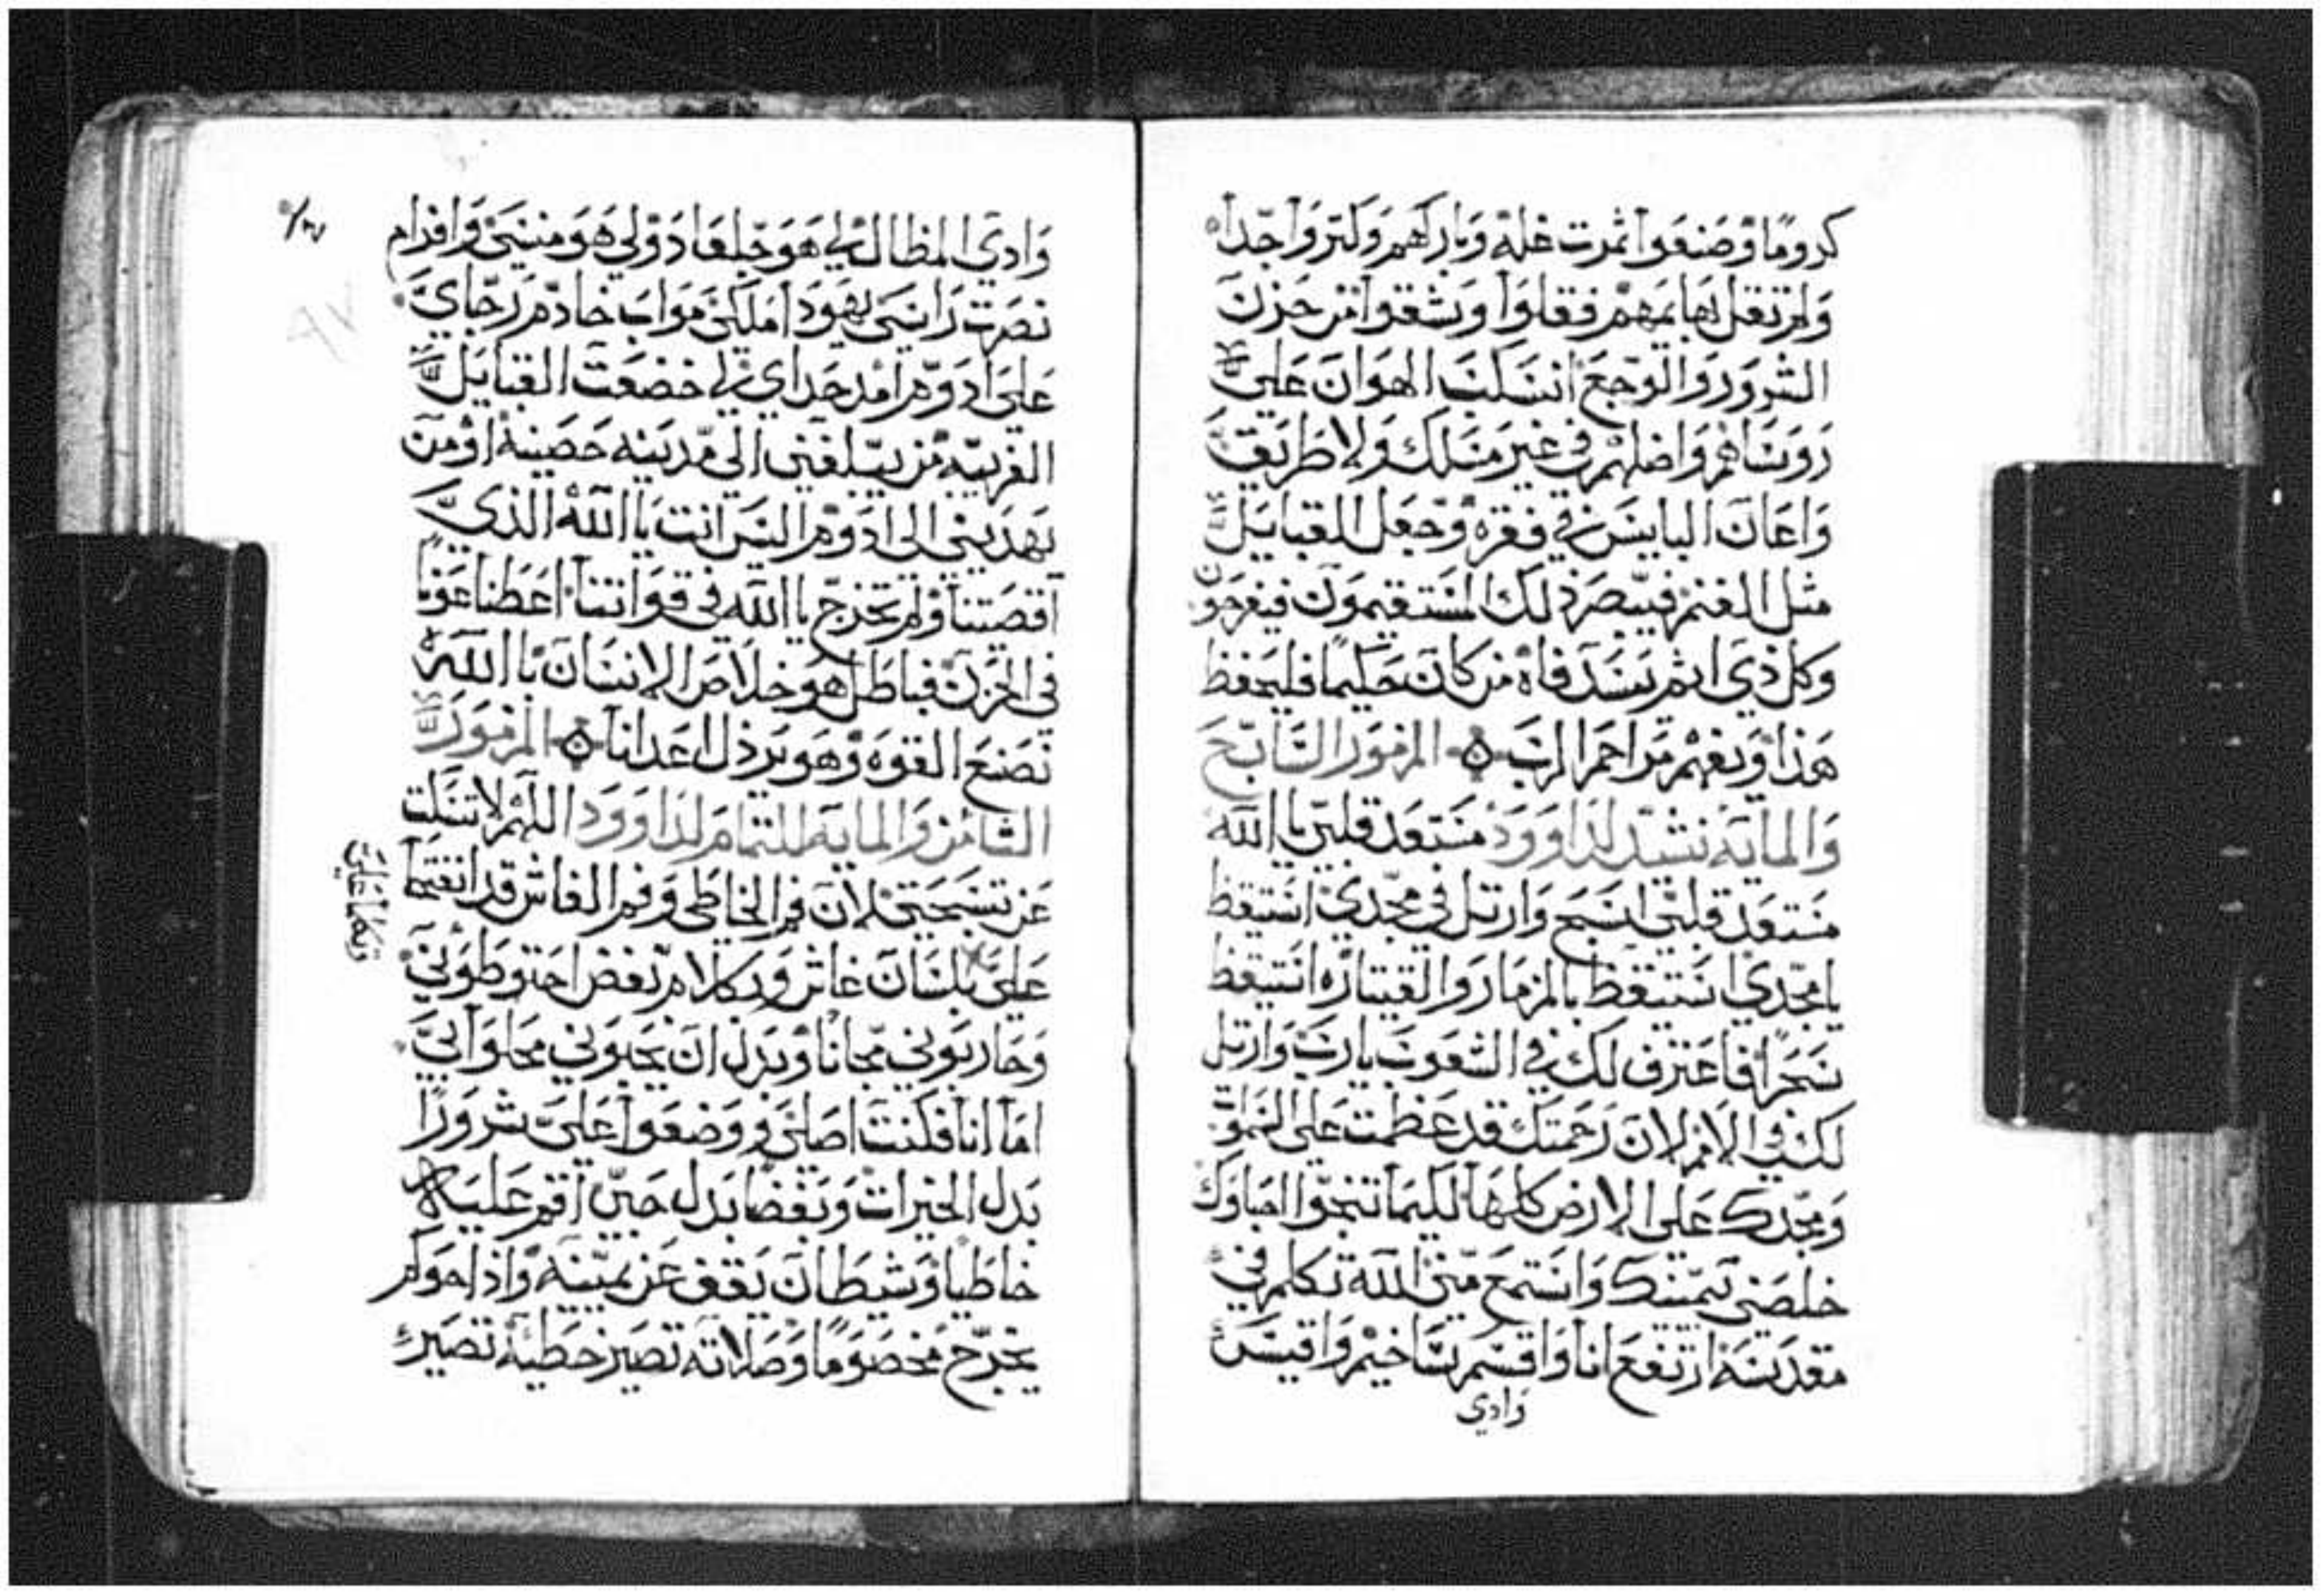 كروما وصنعوا ثمرت غله وباركهم وكثروا جدا
ولم تقل بهايمهم فقلوا وشقوا من حزن
الشرور والوجع انسكب الهوان على
روساهم واضلهم في غير مسلك ولا طريق
واعان البايس في فقره وجعل القبايل
مثل الغنم فيبصر ذلك المستقيمون فيفرحون
وكل ذي اثم يسد فاه من كان حكيما فليحفظ
هذا ويفهم مراحم الرب المزمور السابع
والمايه نشيد لداوود مستعد قلبي يا الله
مستعد قلبي اسبح وارتل في مجدي استيقظ
يا مجدي استيقظ بالمزمار والقيتاره استيقظ
سحرا فاعترف لك في الشعوب يا رب وارتل
لك في الامم لان رحمتك قد عظمت على السموات
ومجدك على الارض كلها لكيما تنجوا احباوك
خلصني بيمينك واستمع مني الله تكلم في
مقدسه ارتفع انا واقسم ساخيم واقيس
وادي
وادي المظال لي هو جلعاد ولي هو منسى وافرام
نصرت راسي يهودا ملكي مواب خادم رجاي
على ادوم امد حداي لي خضعت القبايل
الغريبه من يبلغني الى مدينه حصينه او من
يهديني الى ادوم اليس انت يا الله الذي
اقصتنا ولم تخرج يا الله في قواتنا اعطنا عونا
في الحزن فباطل هو خلاص الانسان بالله
نصنع القوه وهو يرذل اعدانا المزمور
الثامن والمايه للتمام لداوود اللهم لا تسكت
عن تسبحتي لان فم الخاطي وفم الغاش قد انفتحا
علي بلسان غاش وبكلام بغض احتوطوني
تكلما علي
وحاربوني مجانا وبدل ان يحبوني محلوا بي
اما انا فكنت اصلي ووضعوا علي شرورا
بدل الخيرات وبغضا بدل حبي اقم عليه
خاطيا وشيطان يقف عن يمينه واذا حوكم
يخرج مخصوما وصلاته تصير خطيه تصير